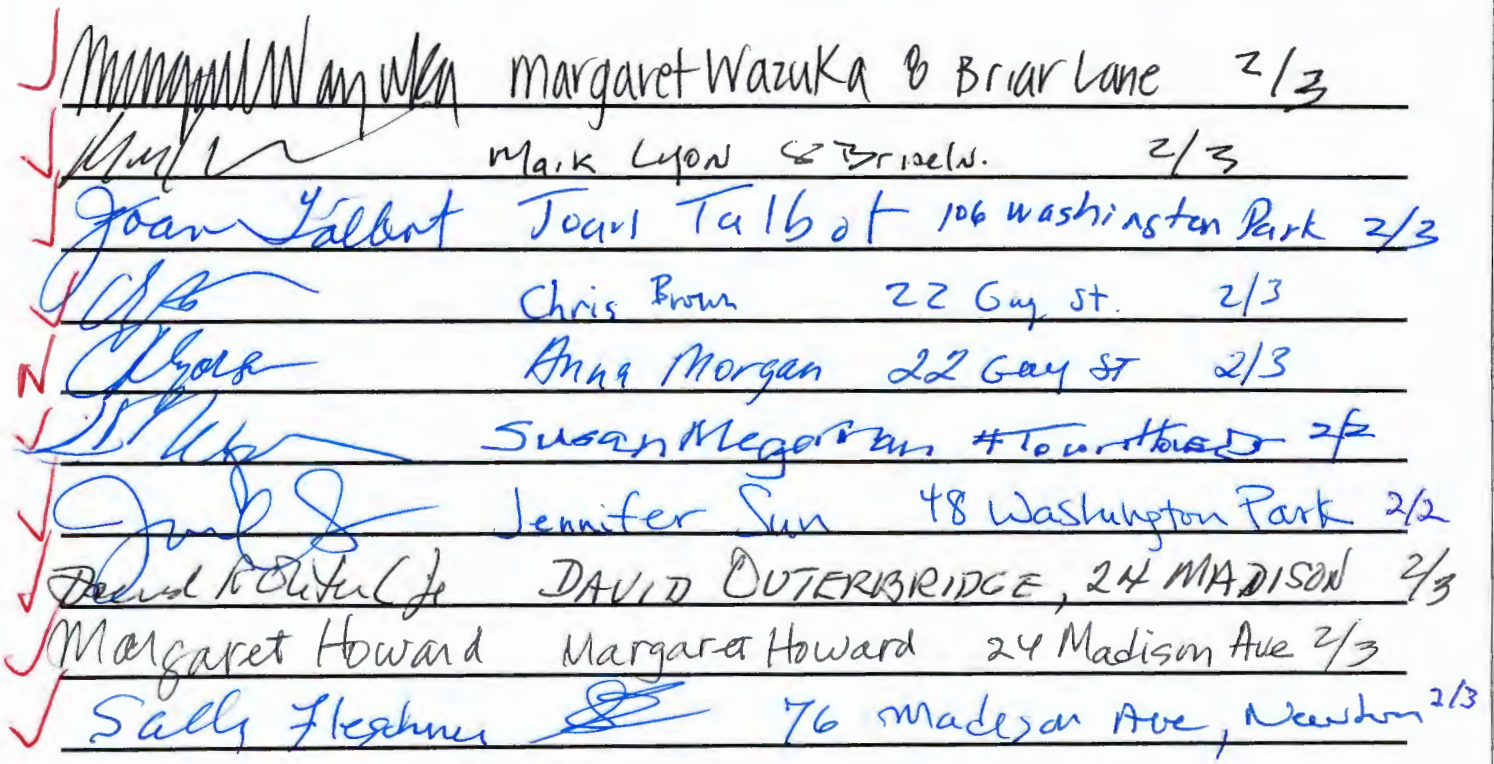 Margaret Wazuka 8 Briar Lane 2/3
Mark Lyon 8 2/3
Joan Talbot Joan Talbot 106 Washington Park 2/3
Chris Brown 22 Gay St. 2/3
N Anna Morgan 22 Gay ST 2/3
Susan 2/2
Jennifer Sun 48 Washington Park 2/2
David DAVID OUTERBRIDGE, 24 MADISON 2/3
Margaret Howard Margaret Howard 24 Madison Ave 2/3
Sally 76 Madison Ave, Newton 2/3